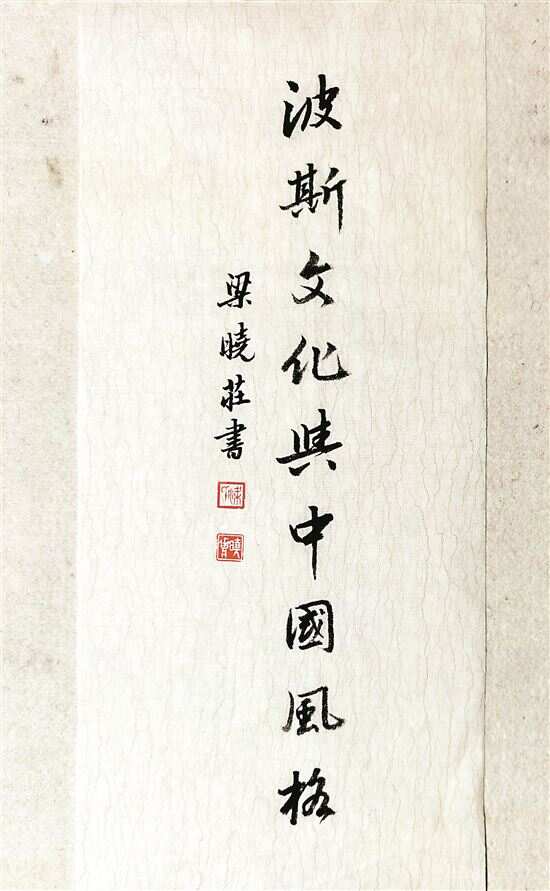 波斯文化與中國風格
梁曉莊書